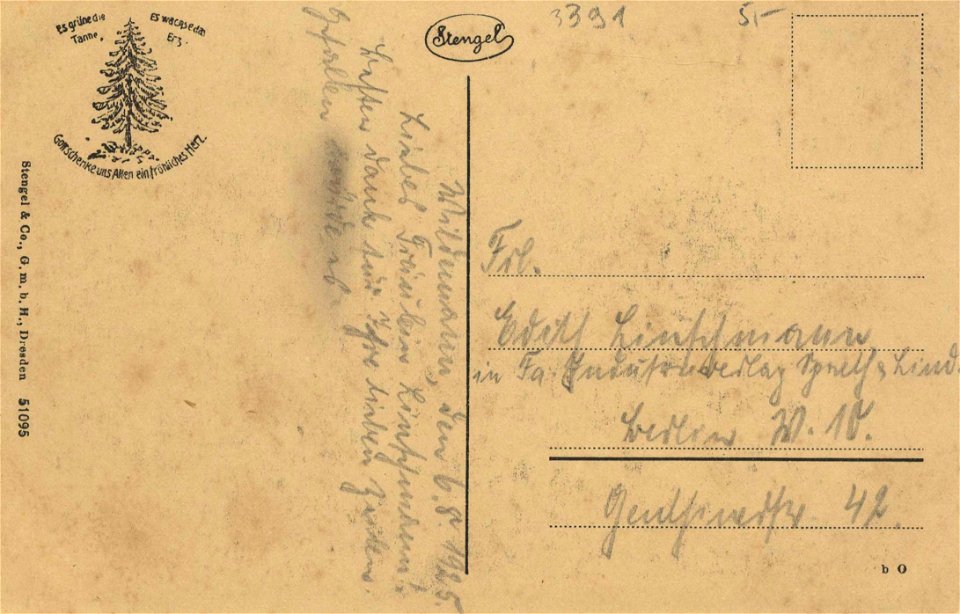 Es grüne die
Tanne,
Es wachse das
Erz.
Gott schenke uns Allen ein fröhliches Herz.
Stengel
3391
5,-
Stengel & Co., G. m. b. H., Dresden 51095
Wildemann, den 6.8.1925.
Liebes Fräulein Lintzmann!
Besten Dank für Ihre lieben Zeilen.
Frl.
Edith Lintzmann
in Fa. Industrieverlag Spaeth & Lind.
Berlin W. 10.
Genthinerstr. 42.
b O